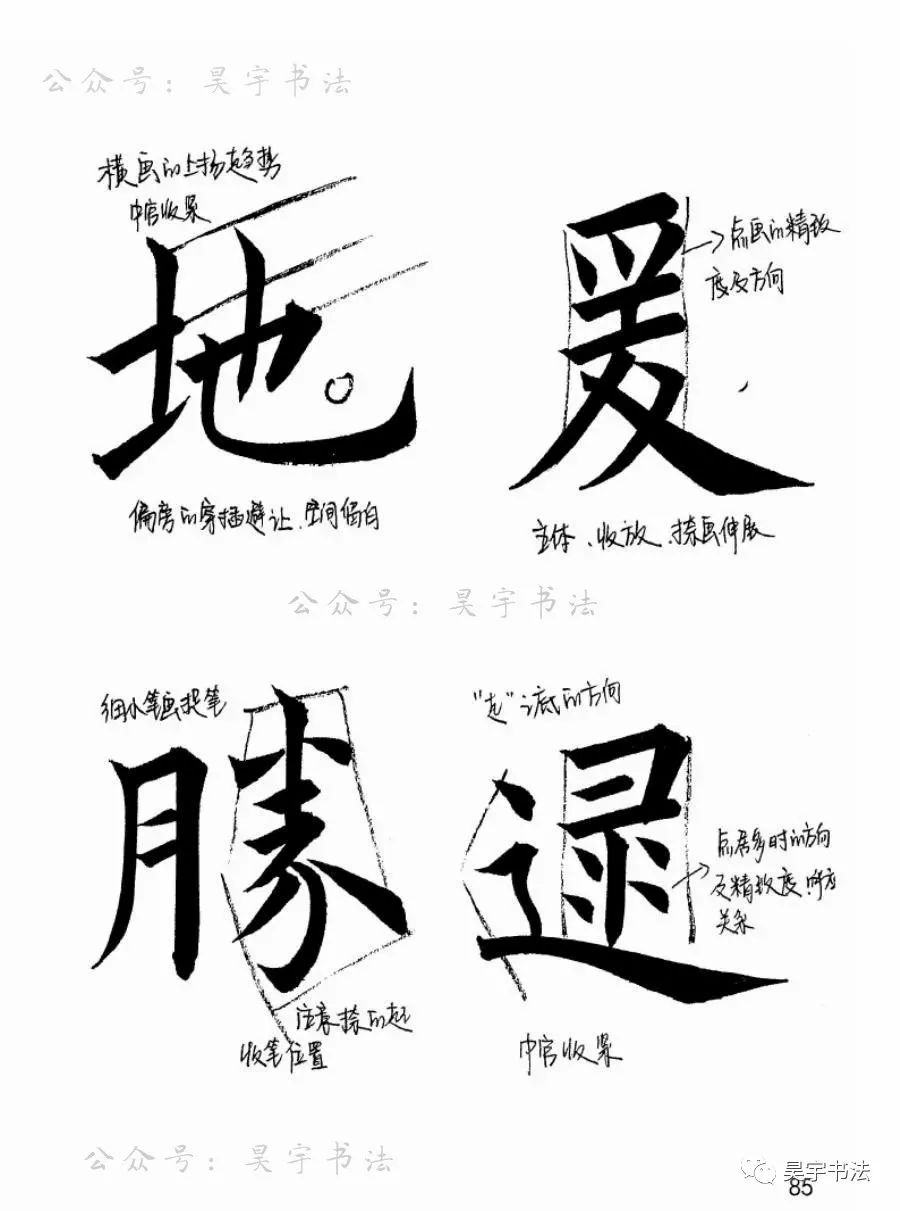 公众号：昊宇书法
横画的上扬趋势
中宫收紧
地
偏旁的穿插避让、空间留白
爰
点画的精致
度及方向
主体、收放、捺画伸展
公众号：昊宇书法
细小笔画提笔
勝
注意捺的起
收笔位置
"辶"之底的方向
逯
点居多时的方向
及精致度、呼应
关系
中宫收紧
公众号：昊宇书法
昊宇书法
85